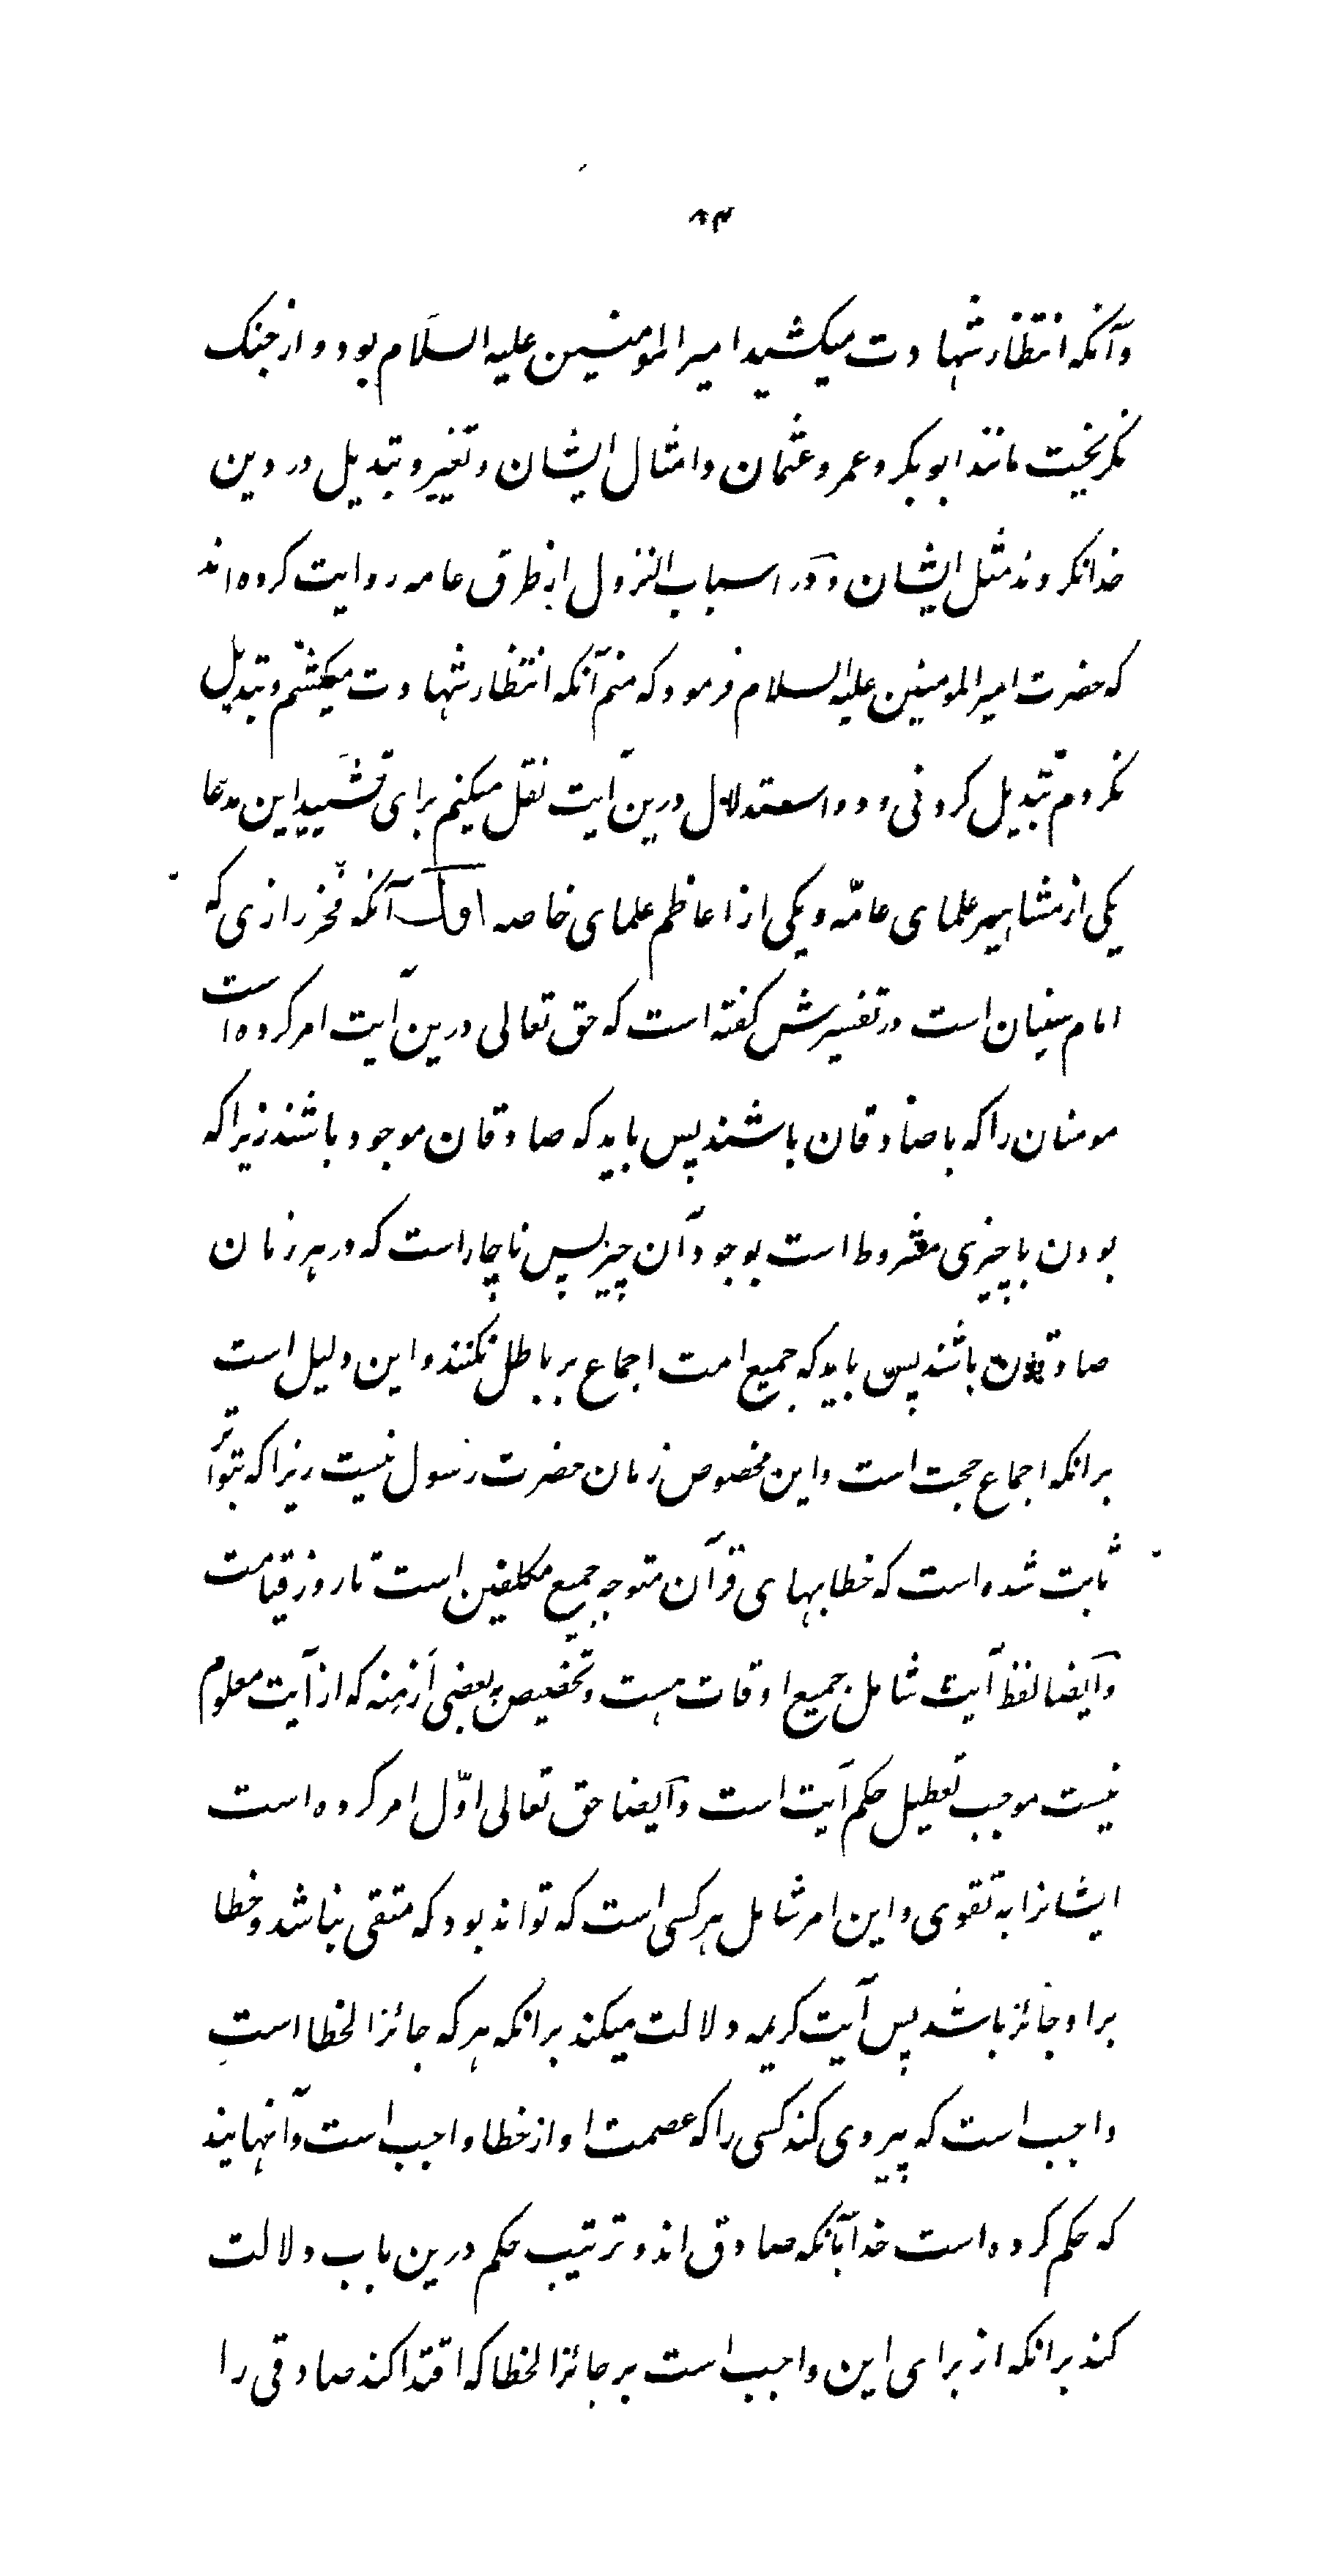 ۸۳
وآنکه انتظار شهادت میکشید امیرالمومنین علیه السلام بود و از جنک
نکریخت مانند ابوبکر و عمر و عثمان و امثال ایشان و تغییر و تبدیل در دین
خدا نکردند مثل ایشان و در اسباب النزول از طرق عامه روایت کرده اند
که حضرت امیرالمومنین علیه السلام فرمود که منم آنکه انتظار شهادت میکشم و تبدیل
نکردم تبدیل کردنی و دو استدلال درین آیت نقل میکنم برای تشیید این مدعا
یکی از مشاهیر علمای عامّه و یکی از اعاظم علمای خاصه اول آنکه فخر رازی که
امام سنیان است در تفسیرش کفته است که حق تعالی درین آیت امر کرده است
مومنان را که با صادقان باشند پس باید که صادقان موجود باشند زیرا که
بودن با چیزی مشروط است بوجود آن چیز پس ناچار است که در هر زمان
صادقون باشند پس باید که جمیع امت اجماع بر باطل نکنند و این دلیل است
برانکه اجماع حجت است و این مخصوص زمان حضرت رسول نیست زیرا که بتواتر
ثابت شده است که خطابهای قرآن متوجه جمیع مکلفین است تا روز قیامت
وایضا لفظ آیت شامل جمیع اوقات هست و تخصیص ببعضی ازمنه که از آیت معلوم
نیست موجب تعطیل حکم آیت است وایضا حق تعالی اوّل امر کرده است
ایشانرا به تقوی و این امر شامل هر کسی است که تواند بود که متقی نباشد و خطا
برا و جائز باشد پس آیت کریمه دلالت میکند برانکه هر که جائز الخطا است
واجب است که پیروی کند کسی را که عصمت او از خطا واجب است وآنهایند
که حکم کرده است خدا بآنکه صادق اند و ترتیب حکم درین باب دلالت
کند برانکه از برای این واجب است بر جائز الخطا که اقتدا کند صادقی را